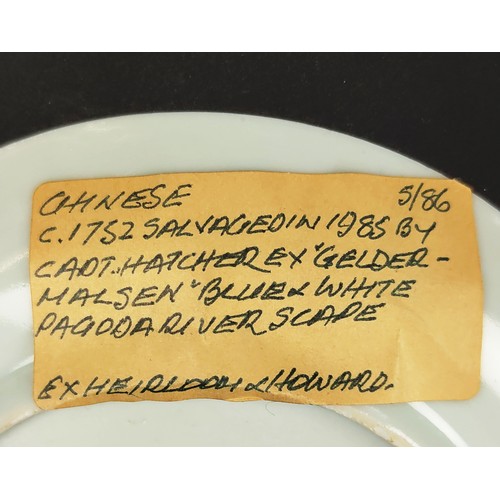 CHINESE 5/86
C.1752 SALVAGED IN 1985 BY
CAPT. HATCHER EX "GELDER-
MALSEN" BLUE & WHITE
PAGODA RIVER SCAPE
EX HEIRLOOM & HOWARD.